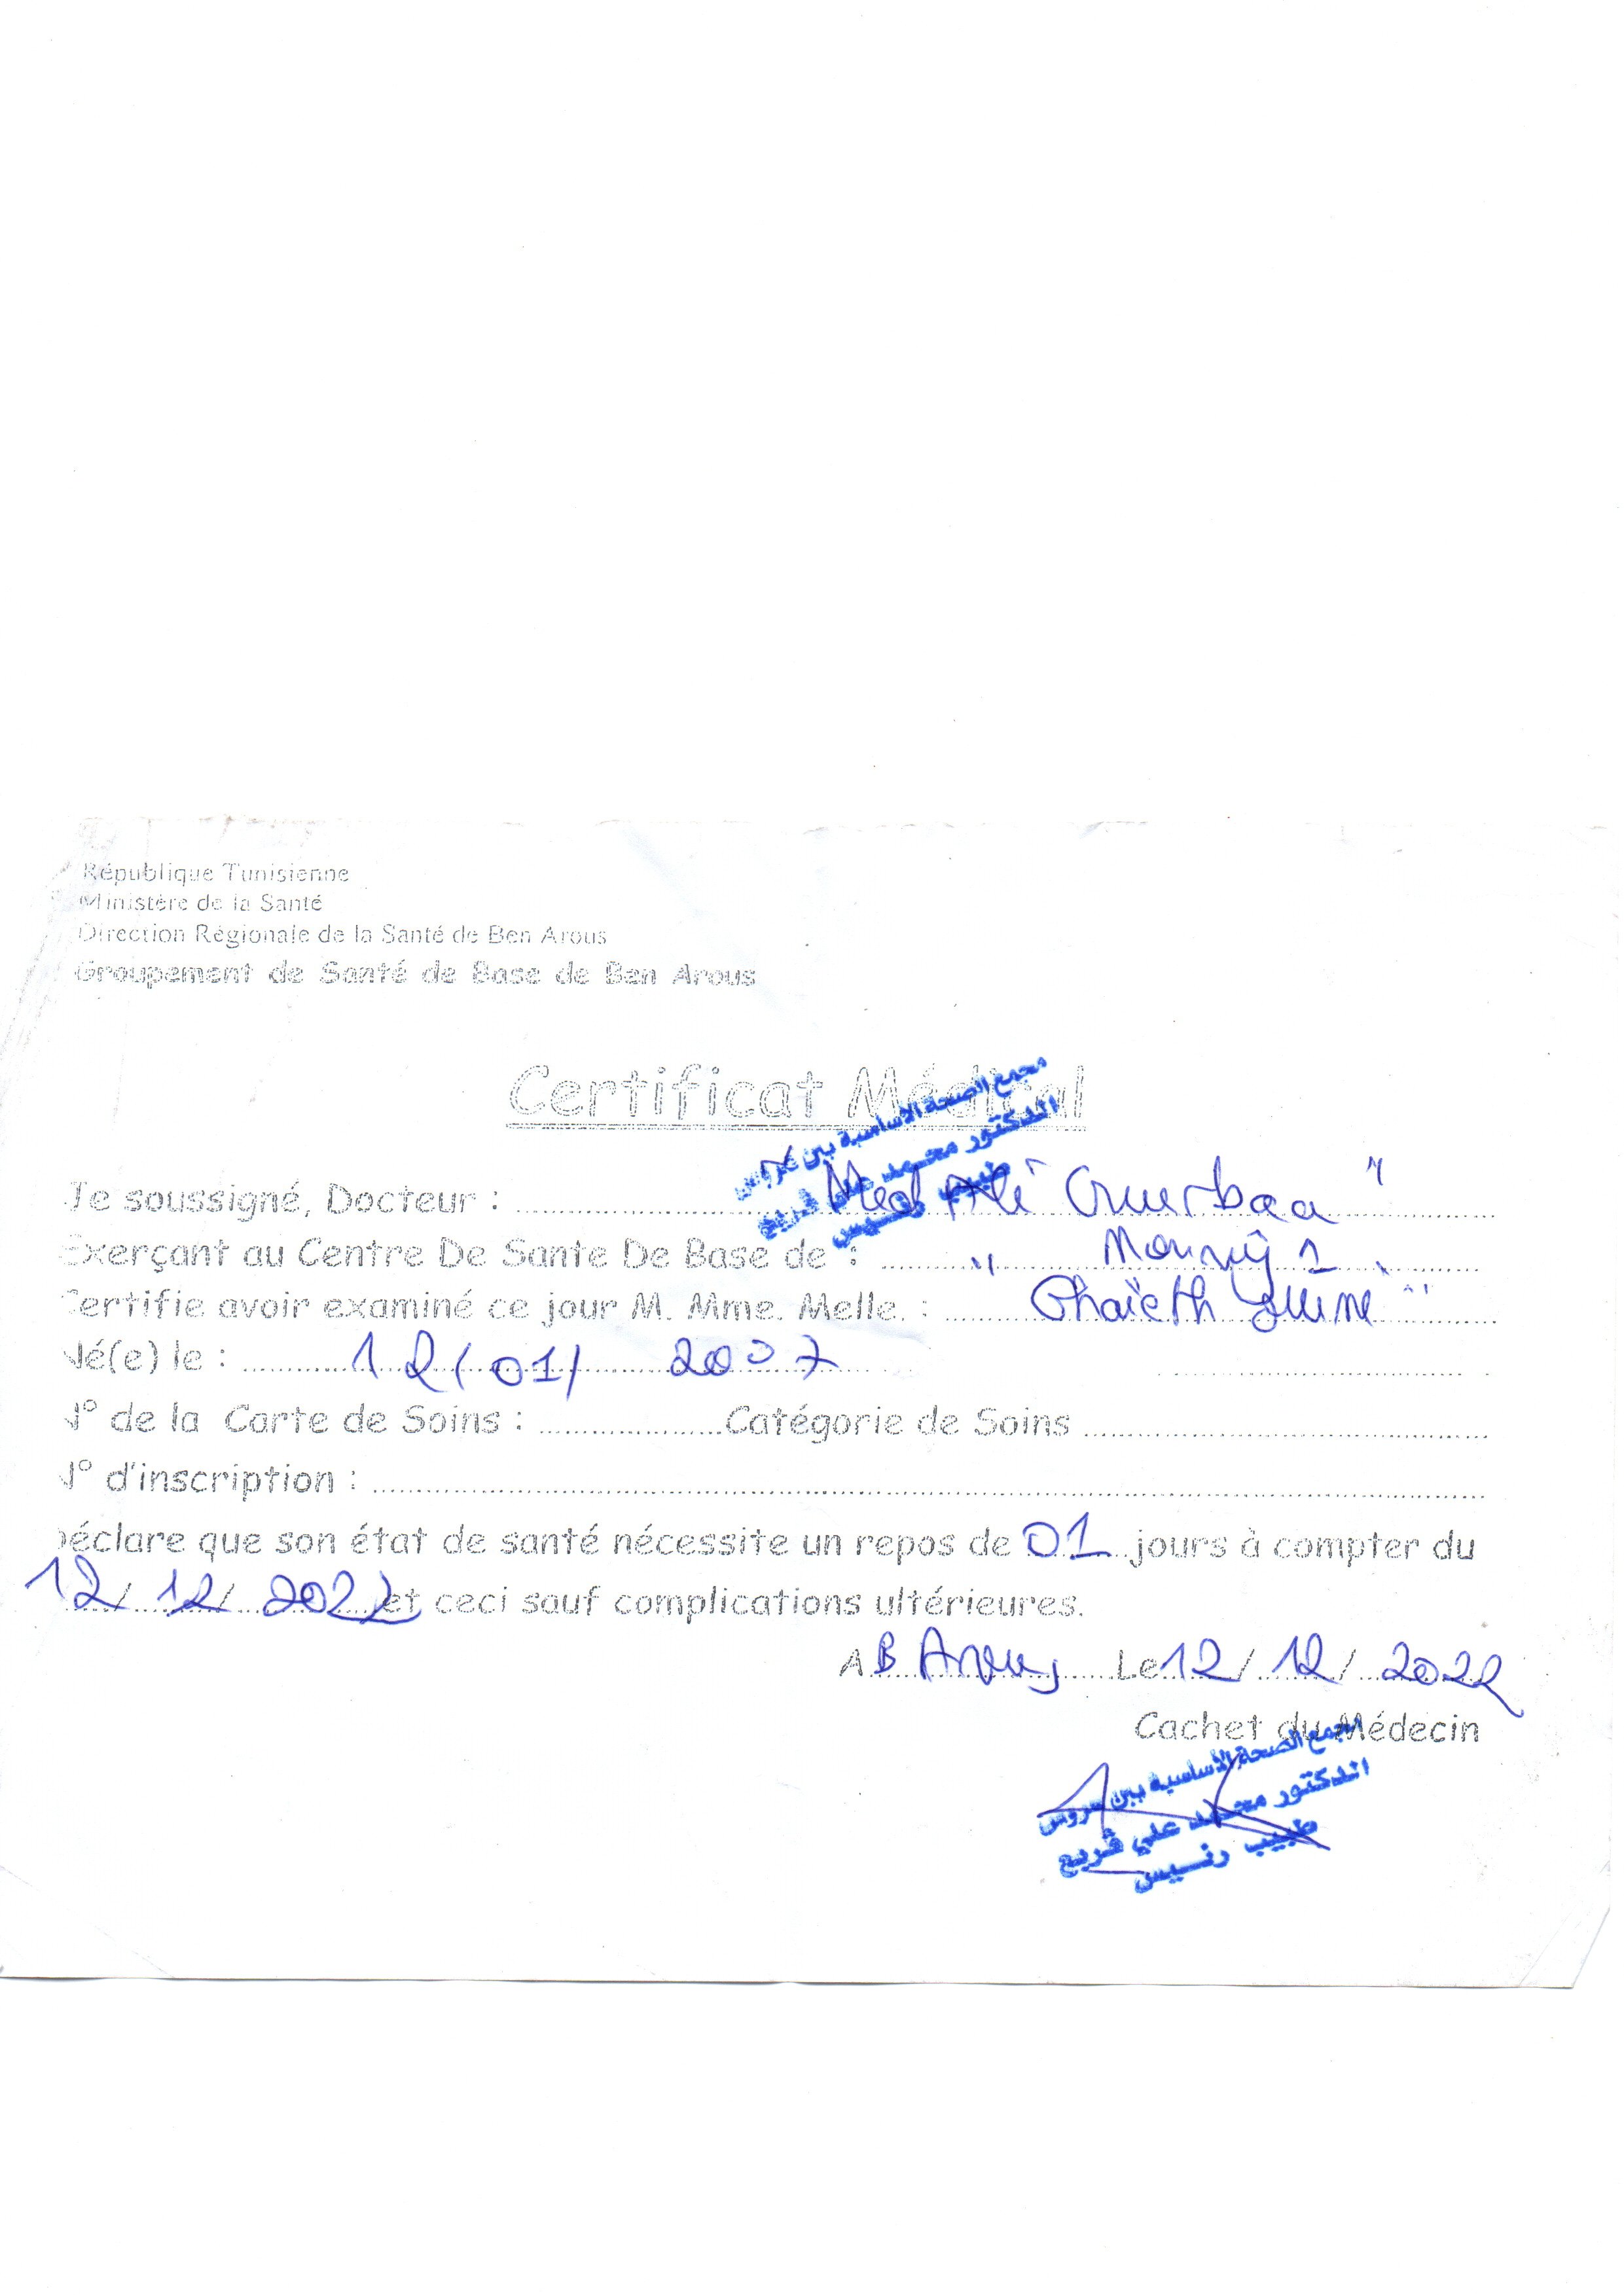 République Tunisienne
Ministère de la Santé
Direction Régionale de la Santé de Ben Arous
Groupement de Santé de Base de Ben Arous
Certificat Médical
مجمع الصحة الأساسية ببن عروس
الدكتور محمد علي ڨربع
طبيب رئيس
Je soussigné, Docteur : " Med Ali Guerbaa "
Exerçant au Centre De Sante De Base de : " Mourouj 1 "
Certifie avoir examiné ce jour M. Mme. Melle. : Ghaïeth
Né(e) le : 12/01/ 2007
N° de la Carte de Soins : Catégorie de Soins
N° d'inscription :
Déclare que son état de santé nécessite un repos de 01 jours à compter du
12/ 12/ 2022 et ceci sauf complications ultérieures.
A B Arous Le 12/ 12/ 2022
Cachet du Médecin
مجمع الصحة الأساسية ببن عروس
الدكتور محمد علي ڨربع
طبيب رئيس